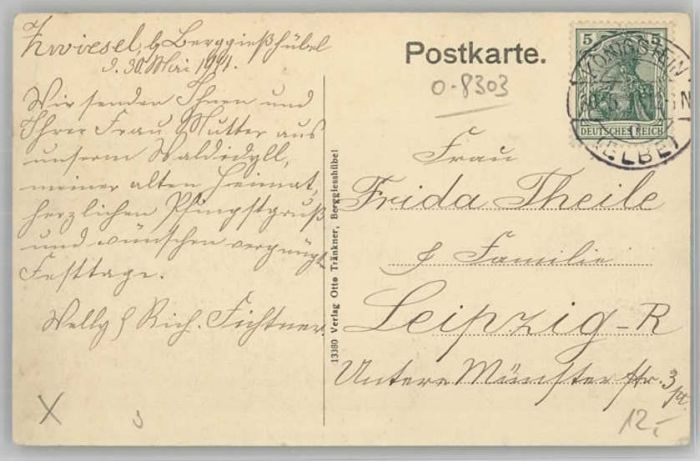 Zwiesel, b/ Berggießhübel
d. 30. Mai 1911.
Wir senden Ihnen und
Ihrer Frau Mutter aus
unserm Waldidyll,
meiner alten Heimat,
herzlichen Pfingstgruß
und wünschen vergnügte
Festtage.
Welly & Rich. Fichtner.
13380 Verlag Otto Tränkner, Berggiesshübel
Postkarte.
0-8303
5 5
DEUTSCHES REICH
KÖNIGSTEIN
(ELBE)
Frau
Frida Theile
& Familie
Leipzig-R
Untere Münster str. 3 pt.
12,-
X